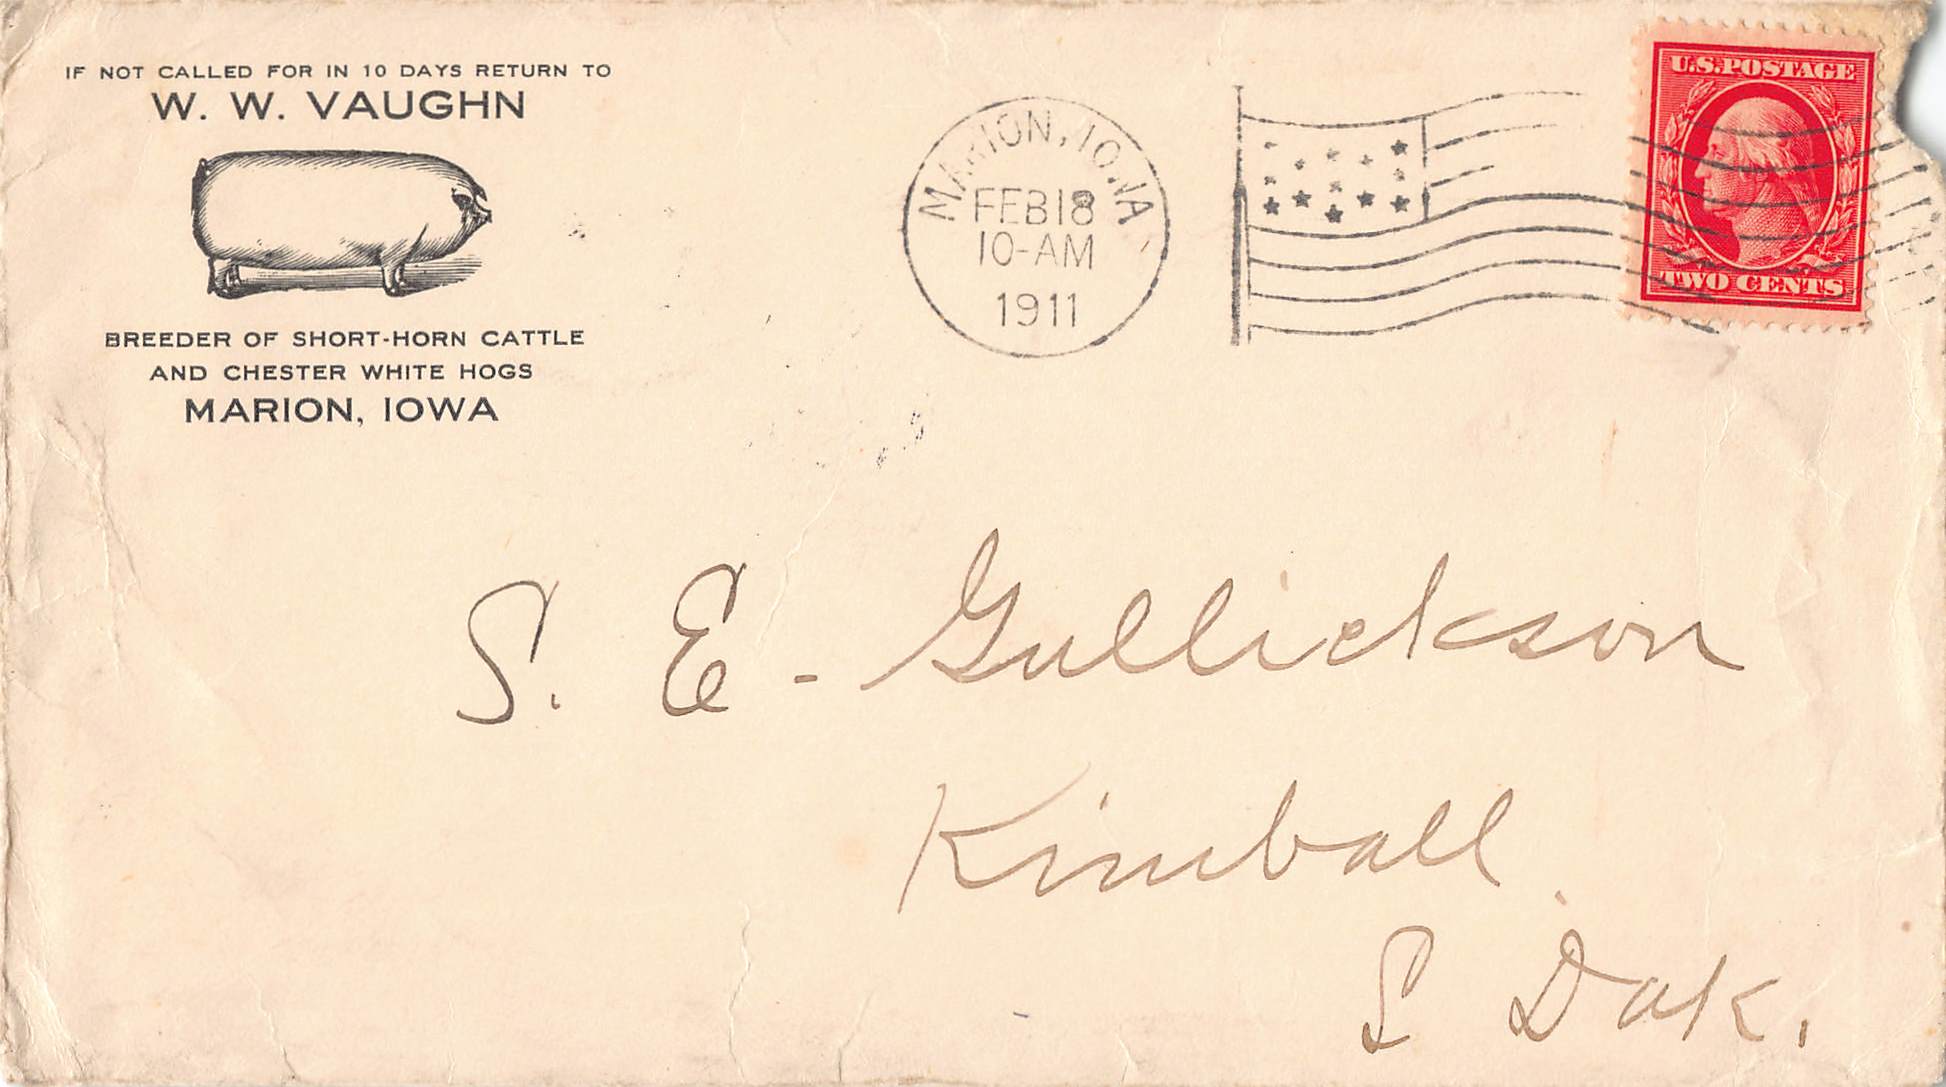 IF NOT CALLED FOR IN 10 DAYS RETURN TO
W. W. VAUGHN
BREEDER OF SHORT-HORN CATTLE
AND CHESTER WHITE HOGS
MARION, IOWA
MARION, IOWA
FEB 18
10-AM
1911
U.S. POSTAGE
TWO CENTS
S. E - Gullickson
Kimball
S Dak.